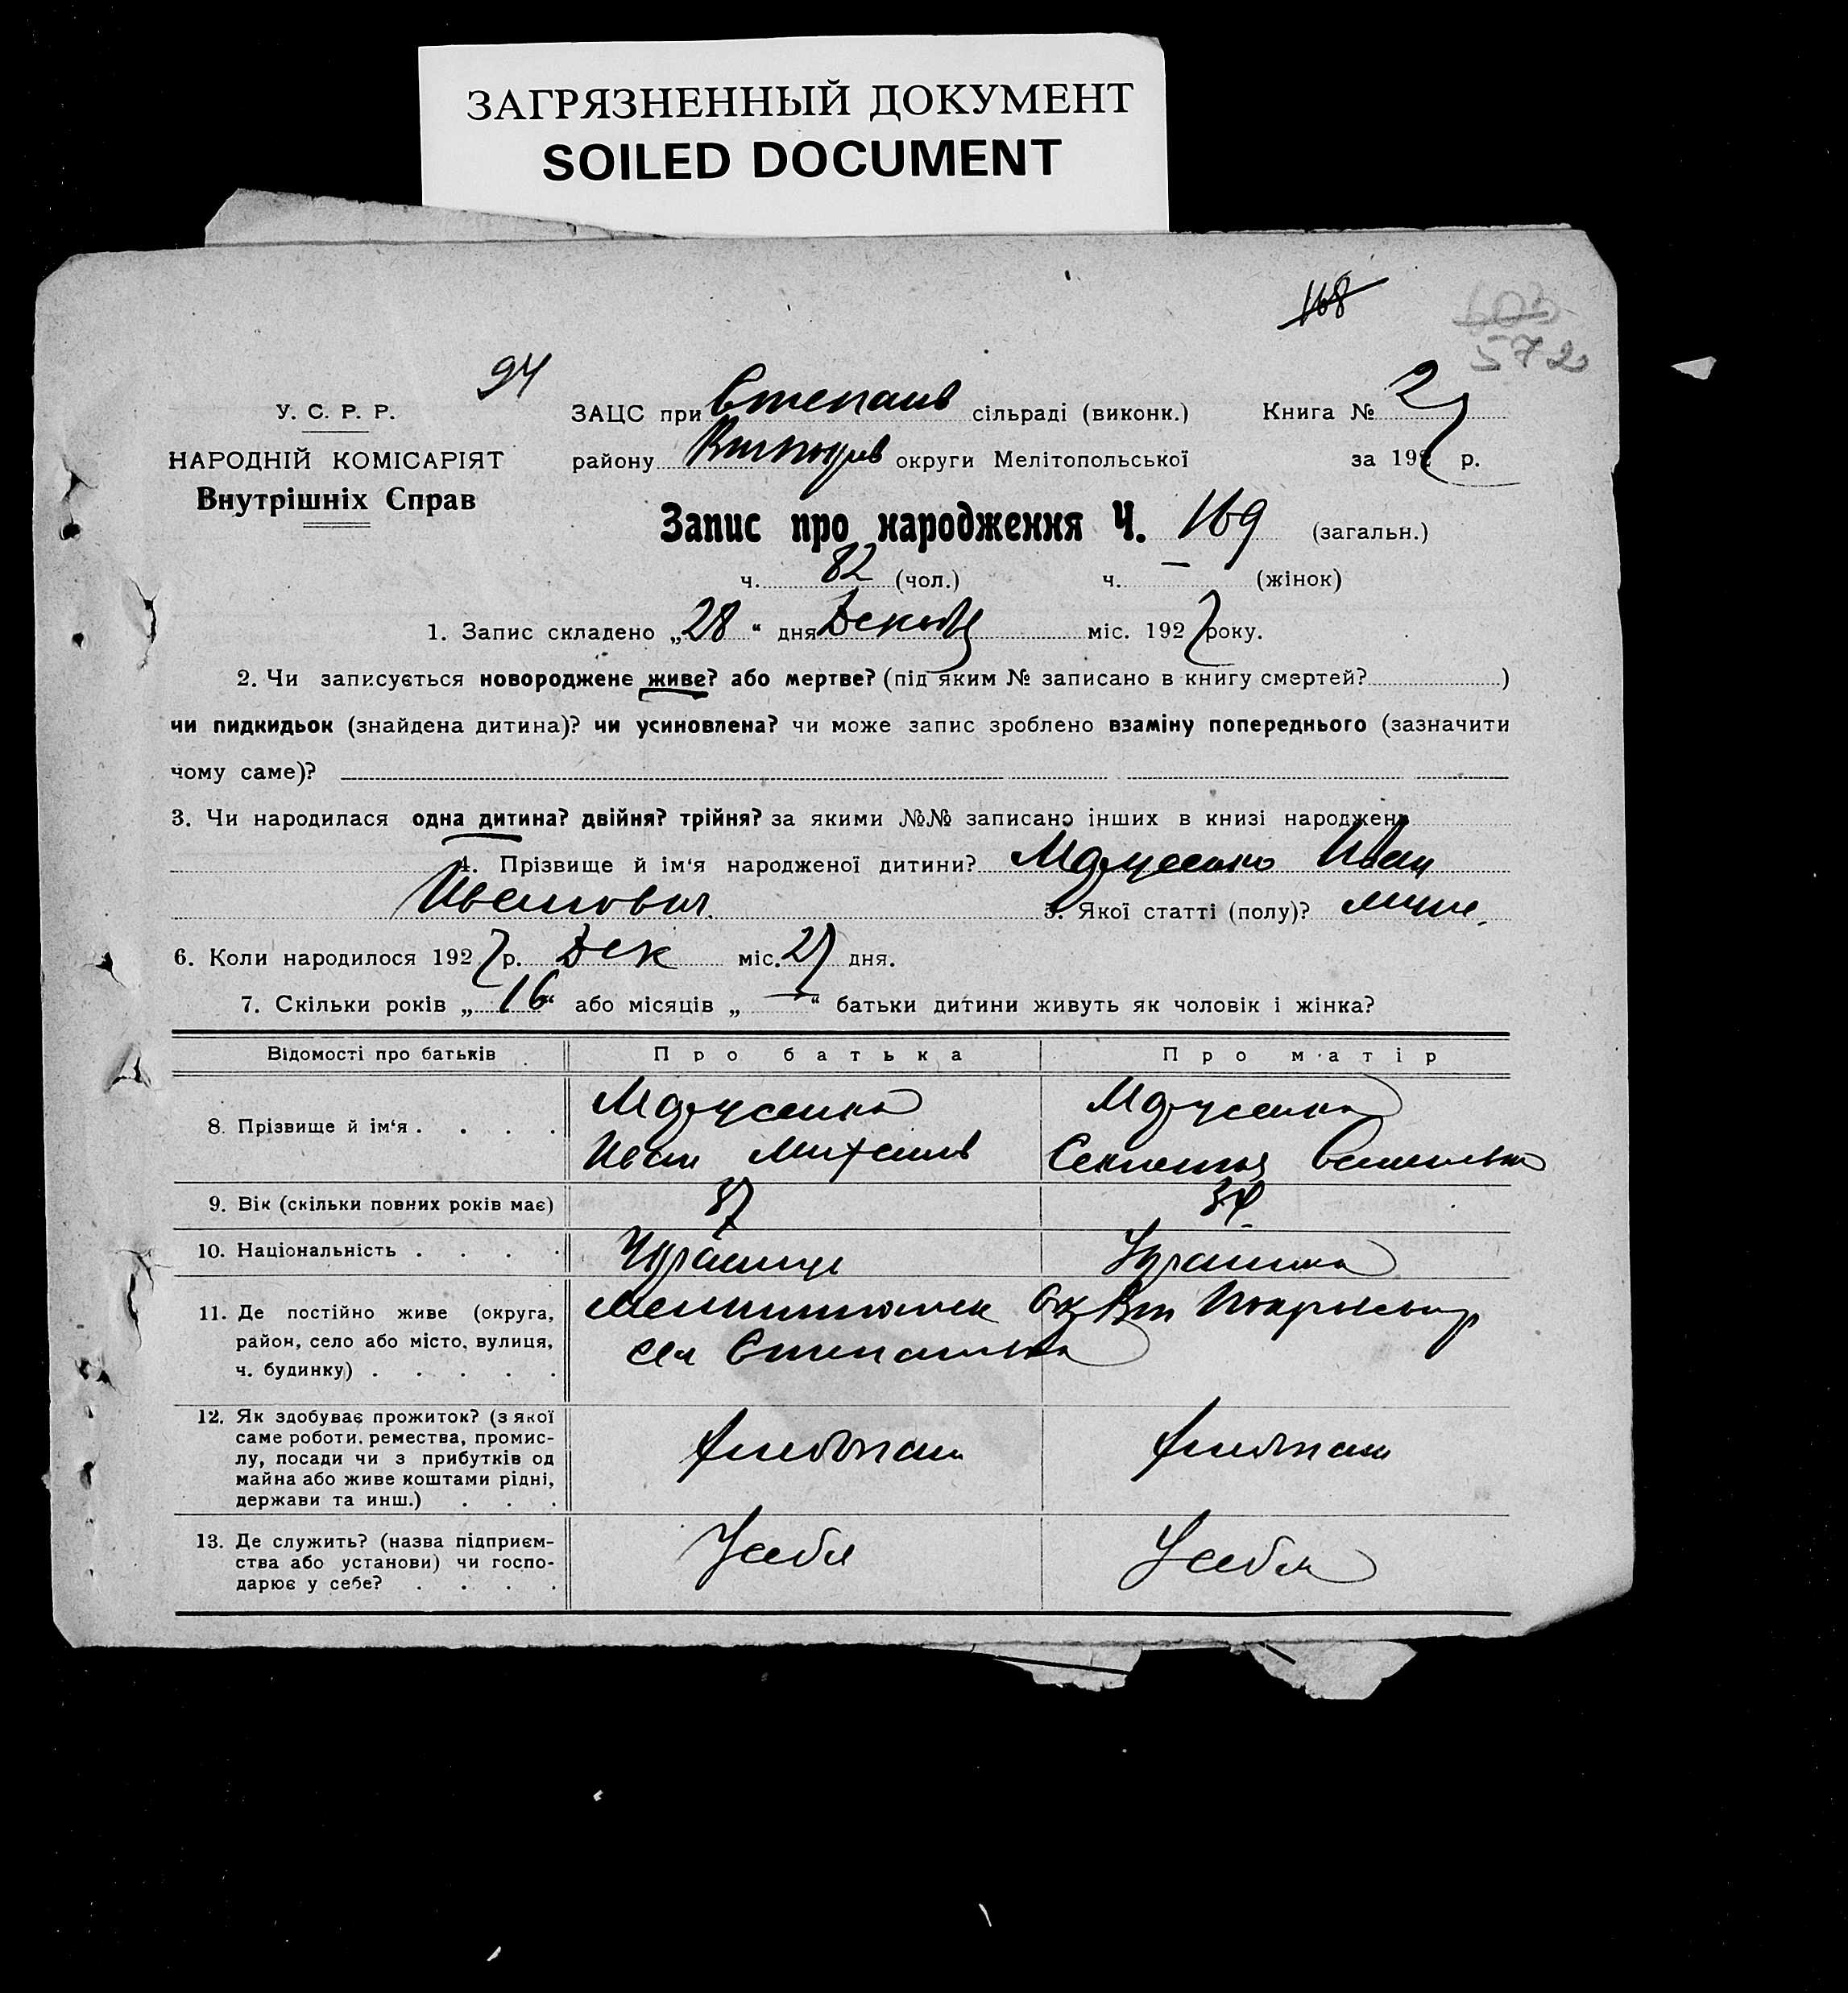 ЗАГРЯЗНЕННЫЙ ДОКУМЕНТ
SOILED DOCUMENT
168
603
572
94
У. С. Р. Р.
ЗАЦС при Степанів сільраді (виконк.) Книга № 2
НАРОДНІЙ КОМІСАРІЯТ
району округи Мелітопольської за 1927 р.
Внутрішніх Справ
Запис про народження Ч. 169 (загальн.)
ч. 82 (чол.) ч. — (жінок)
1. Запис складено „28“ дня міс. 1927 року.
2. Чи записується новороджене живе? або мертве? (під яким № записано в книгу смертей? )
чи пидкидьок (знайдена дитина)? чи усиновлена? чи може запис зроблено взаміну попереднього (зазначити
чому саме)?
3. Чи народилася одна дитина? двійня? трійня? за якими №№ записано інших в книзі народжень
4. Прізвище й ім‘я народженої дитини? Иван
Иванович. 5. Якої статті (полу)?
6. Коли народилося 1927 р. Дек міс. 27 дня.
7. Скільки років „16“ або місяців „—“ батьки дитини живуть як чоловік і жінка?
Відомості про батьків Про батька Про матір
8. Прізвище й ім‘я . . . .
Иван Михайлов
9. Вік (скільки повних років має) 37
10. Національність . . . . Українка
11. Де постійно живе (округа,
район, село або місто, вулиця,
ч. будинку) . . . . .
сел Степановка
12. Як здобуває прожиток? (з якої
саме роботи, ремества, промис-
лу, посади чи з прибутків од
майна або живе коштами рідні,
держави та инш.) . . .
хлебопаш хлебопаш
13. Де служить? (назва підприєм-
ства або установи) чи госпо-
дарює у себе? . . . .
У себя У себя